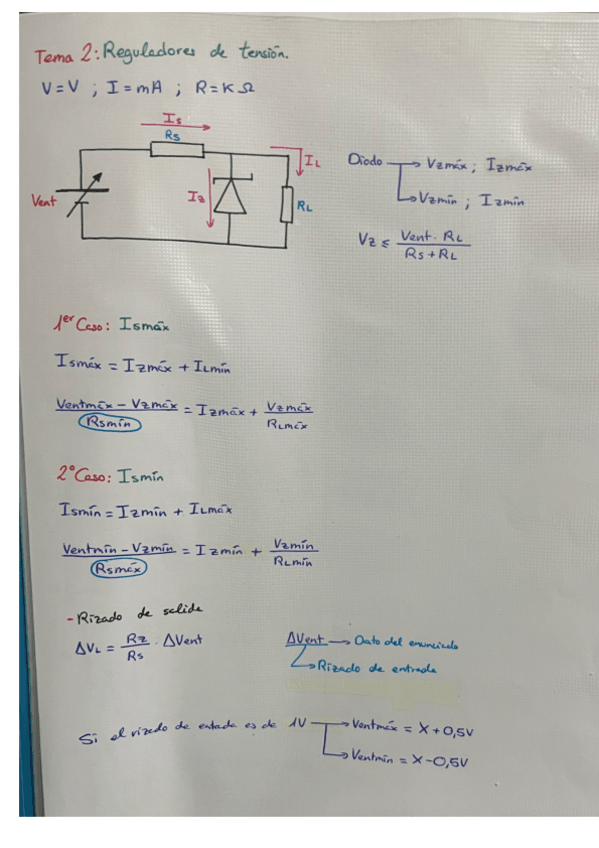 Tema 2: Reguladores de tensión.
V = V ; I = mA ; R = K Ω
Is
Rs
IL
Vent
Iz
RL
Diodo → Vzmáx ; Izmáx
→ Vzmín ; Izmín
Vz ≤ Vent · RL / Rs + RL
1er Caso: Ismáx
Ismáx = Izmáx + ILmín
Ventmáx - Vzmáx / Rsmín = Izmáx + Vzmáx / RLmáx
2º Caso: Ismín
Ismín = Izmín + ILmáx
Ventmín - Vzmín / Rsmáx = Izmín + Vzmín / RLmín
- Rizado de salida
ΔVL = Rz / Rs · ΔVent
ΔVent → Dato del enunciado
→ Rizado de entrada
Si el rizado de entada es de 1V → Ventmáx = X + 0,5V
→ Ventmín = X - 0,5V